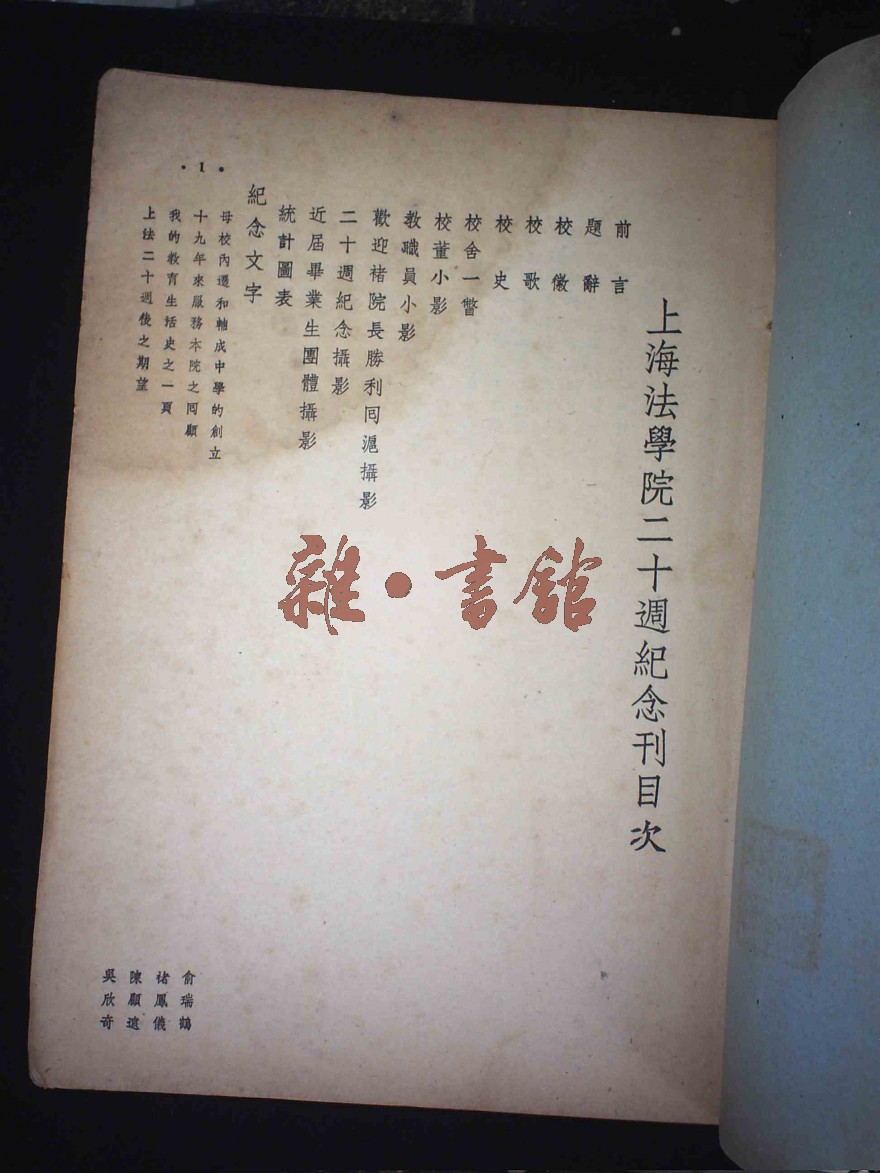 上海法學院二十週紀念刊目次
前言
題辭
校徽
校歌
校史
校舍一瞥
校董小影
教職員小影
歡迎褚院長勝利囘滬攝影
二十週紀念攝影
近屆畢業生團體攝影
統計圖表
紀念文字
母校內遷和輔成中學的創立 俞瑞鶴
十九年來服務本院之囘顧 褚鳳儀
我的教育生活史之一頁 陳顧遠
上法二十週後之期望 吳欣奇
·1·
雜·書館